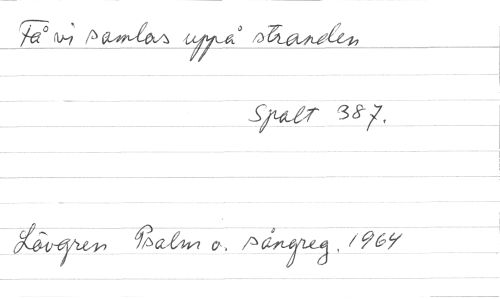 Få vi samlas uppå stranden
Spalt 387.
Lövgren Psalm o. sångreg. 1964